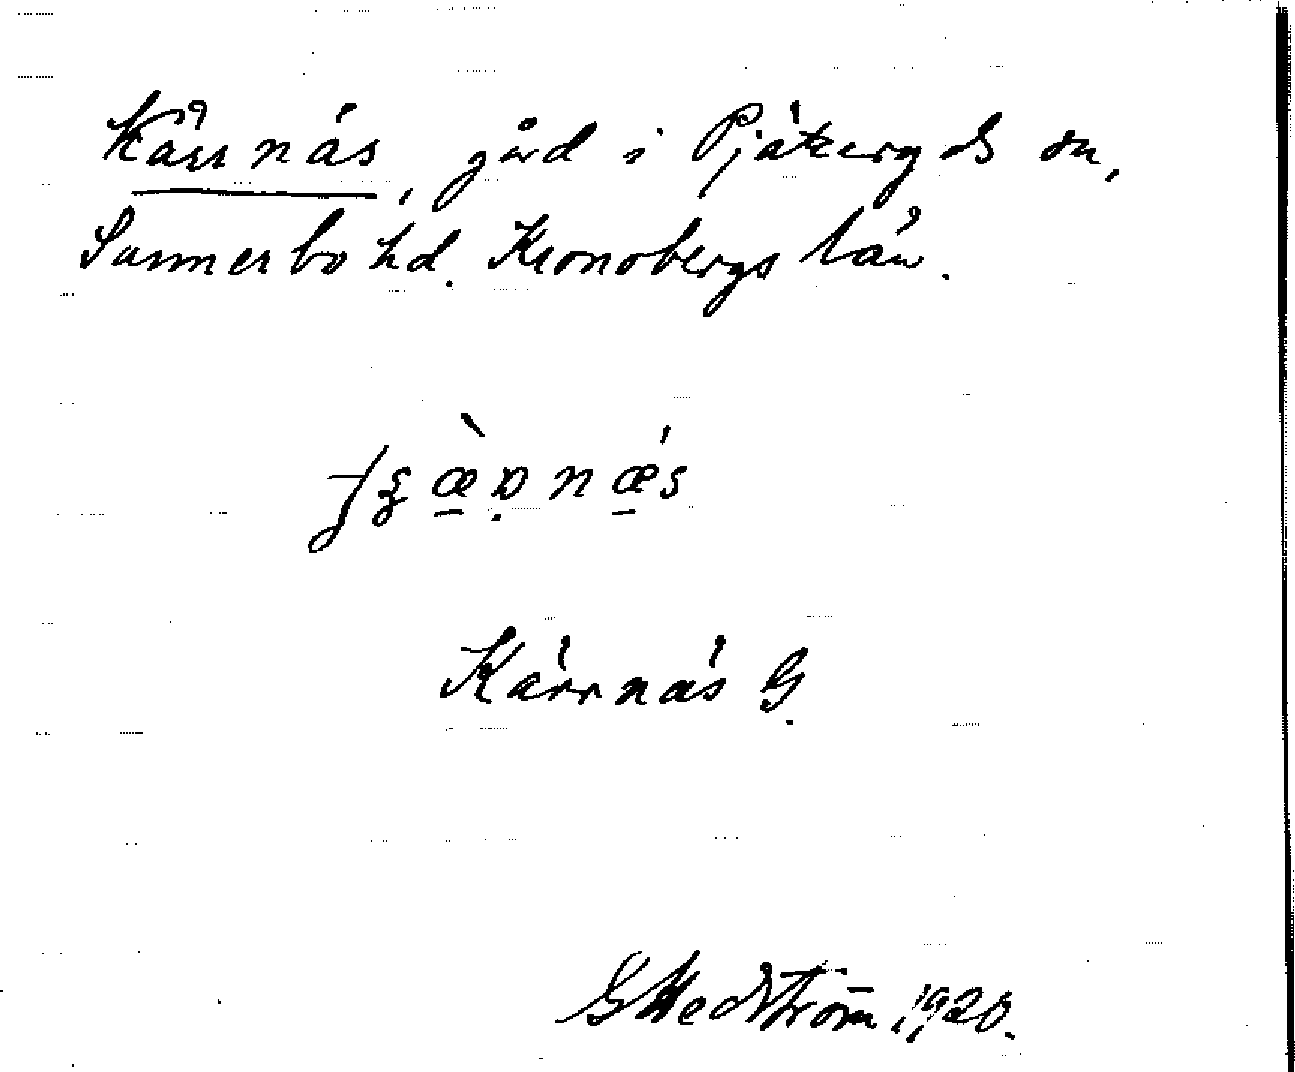 Kärrnäs, gård i Pjätteryds sn,
Sunnerbo hd. Kronobergs län.
Kärrnäs G.
G Hedström 1920.